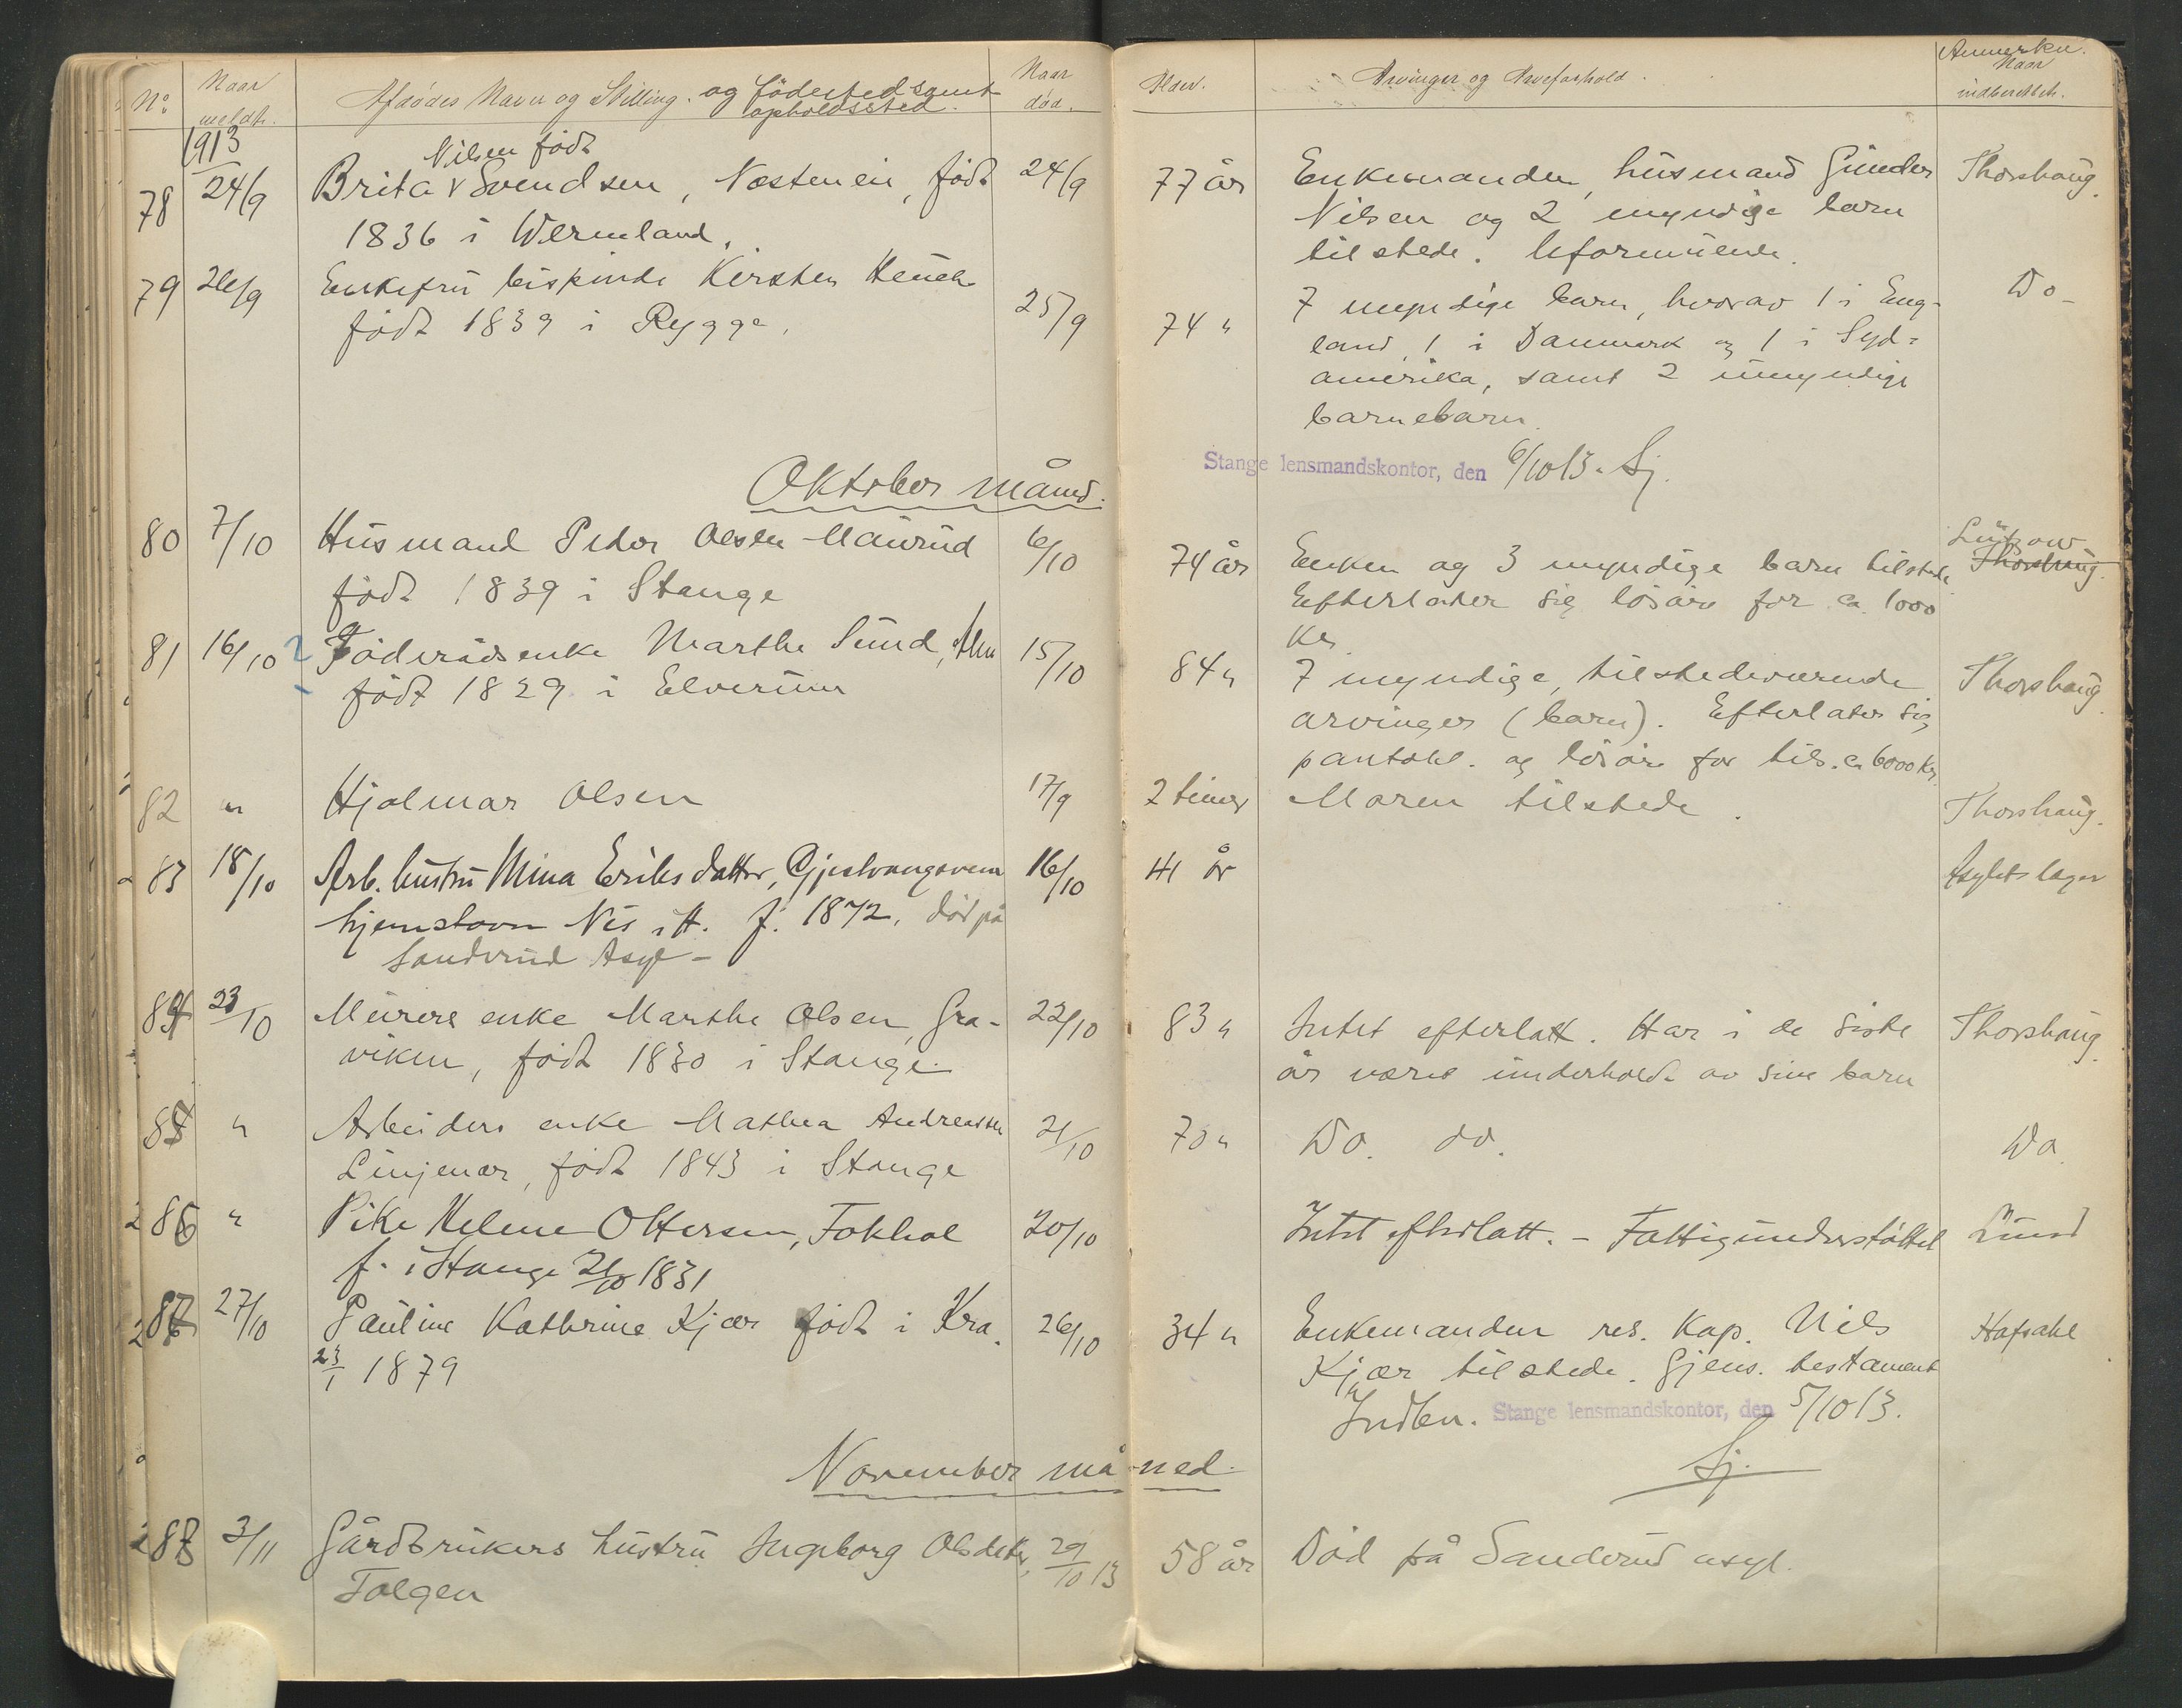 No Naar meldt. Afdødes Navn og Stilling. og fødested samt opholdssted. Naar død. Alder. Arvinger og Arveforhold. Anmerkn. Naar indberettet.
1913
Nilsen født
78 24/9 Brita v Svendsen, Nøsteneie, født 24/9 77 år Enkemanden, husmand Gunder Thorshaug.
1836 i Wermland. Nilsen og 2 myndige barn
tilstede. Uformuende.
79 26/9 Enkefru bispinde Kirsten Heuch 25/9 74 " 7 myndige barn, hvorav 1 i Eng- Do
født 1839 i Rygge. land, 1 i Danmark og 1 i Syd-
amerika, samt 2 umyndige
barnebarn.
Stange lensmandskontor, den 6/10 13. Sj.
Oktober måned.
80 7/10 Husmand Peder Olsen Maurud 6/10 74 år Enken og 3 myndige barn tilstede. Lützow Thorshaug.
født 1839 i Stange Efterlater sig løsøre for ca. 1000
kr.
81 16/10 2 Føderådsenke Marthe Sund, Alm 15/10 84 " 7 myndige, tilstedeværende Thorshaug.
født 1829 i Elverum arvinger (barn). Efterlater sig
pantobl. og løsøre for tils. ca 6000 kr.
82 " Hjalmar Olsen 17/9 2 timer Moren tilstede. Thorshaug.
83 18/10 Arb. hustru Mina Eriksdatter, Gjestvangsveen 16/10 41 år Asylets læger
hjemstavn Nes i H. f. 1872, død på
Sanderud Asyl -
84 23/10 Murers enke Marthe Olsen, Gra- 22/10 83 " Intet efterlatt. Har i de siste Thorshaug.
viken, født 1830 i Stange. år været underholdt av sine barn
85 " Arbeiders enke Mathea Andreassen 21/10 70 " Do. do. Do.
Linjenær, født 1843 i Stange
86 " Pike Helene Ottersen, Fokhol 20/10 Intet efterlatt. - Fattigunderstøttet Lund
f. i Stange 21/10 1831
87 27/10 Pauline Kathrine Kjær født i Kra. 26/10 34 " Enkemanden res. kap. Nils Hafsahl
23/1 1879 Kjær tilstede. Gjens. testament
Indber. Stange lensmandskontor, den 5/10 13.
Sj.
November måned.
88 3/11 Gårdbrukers hustru Ingeborg Olsdatter, 29/10 13 58 år Død på Sanderud asyl.
Tolgen